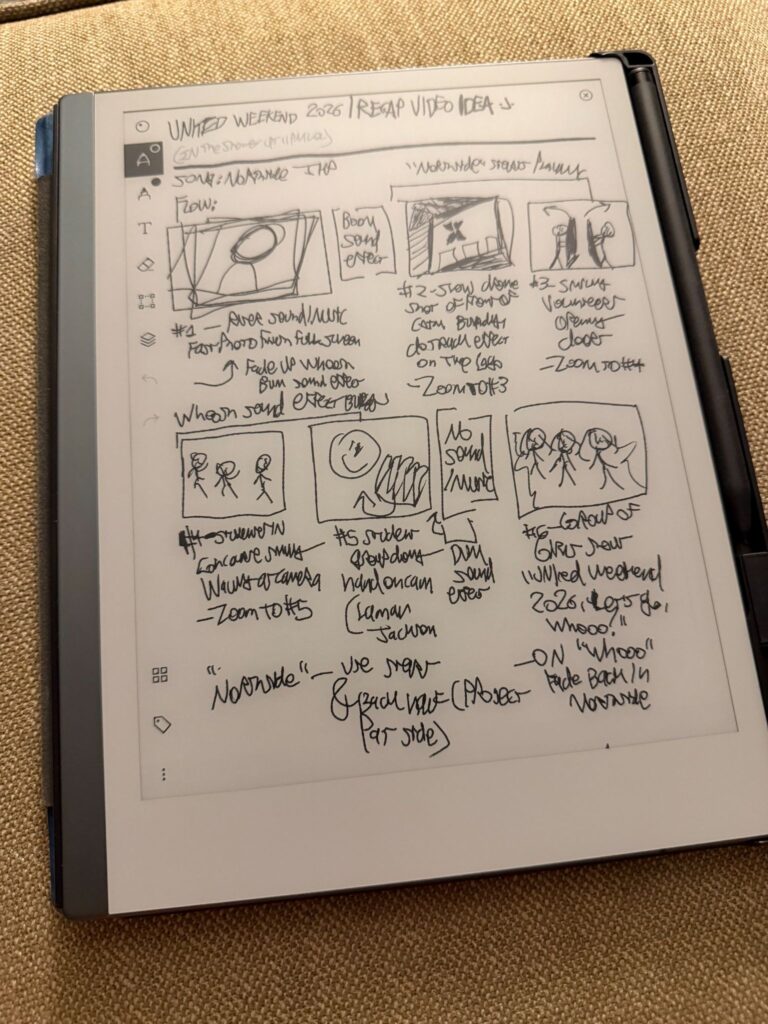 UNITED WEEKEND 2026 / RECAP VIDEO IDEA
(IN THE SHOWER AT
SONG: NORTHSIDE
"NORTHSIDE" STARTS PLAYING
FLOW:
BOOM
SOUND
EFFECT
#1 — RISER SOUND/MUSIC
FAST PHOTO FROM FULL SCREEN
FADE UP WHOOSH
BUM SOUND EFFECT
#2 - SLOW DRONE
SHOT OF FRONT OF
BUILDING,
DO TRACK EFFECT
ON THE LOGO
- ZOOM TO #3
#3 - SMILING
VOLUNTEERS
OPENING
DOOR
- ZOOM TO #4
WHOOSH SOUND EFFECT
NO
SOUND
/MUSIC
#4 - STUDENTS IN
CONCOURSE SMILING
WALKING AT CAMERA
- ZOOM TO #5
#5 STUDENT
GROUP DOING
HAND ON CAM
(LAMAR
JACKSON
DUM
SOUND
EFFECT
#6 - GROUP OF
GIRLS SCREAM
"UNITED WEEKEND
2026, LET'S GO,
WHOOO!"
- ON "WHOOO"
FADE BACK IN
NORTHSIDE
"NORTHSIDE" - USE START
& BACK HALF (
T